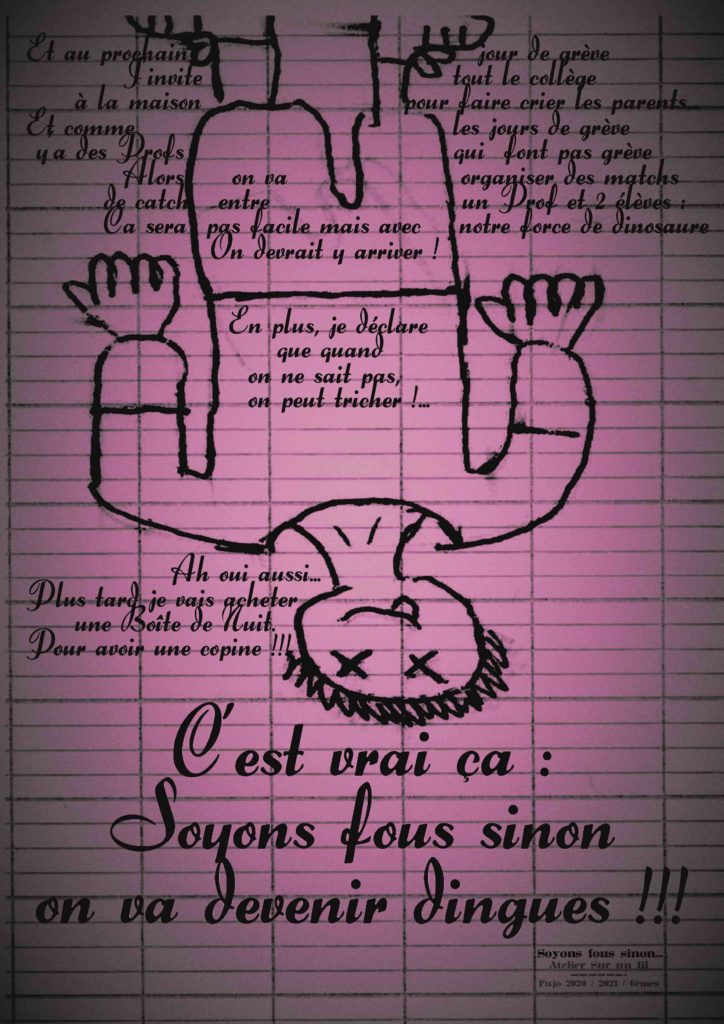 Et au prochain jour de grève
J'invite tout le collège
à la maison pour faire crier les parents...
Et comme les jours de grève
y a des Profs qui font pas grève
Alors on va organiser des matchs
de catch entre un Prof et 2 élèves :
Ca sera pas facile mais avec notre force de dinosaure
On devrait y arriver !
En plus, je déclare
que quand
on ne sait pas,
on peut tricher !...
Ah oui aussi...
Plus tard je vais acheter
une Boîte de Nuit.
Pour avoir une copine !!!
C'est vrai ça :
Soyons fous sinon
on va devenir dingues !!!
Soyons fous sinon...
Atelier Sur un fil
Pujo 2020 / 2021 / 6èmes